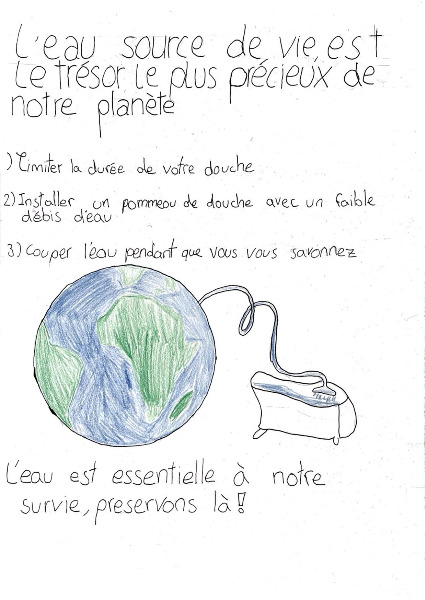 L'eau source de vie, est
le trésor le plus précieux de
notre planète
1) Limiter la durée de votre douche
2) Installer un pommeau de douche avec un faible
débis d'eau
3) Couper l'eau pendant que vous vous savonnez
L'eau est essentielle à notre
survie, preservons là!